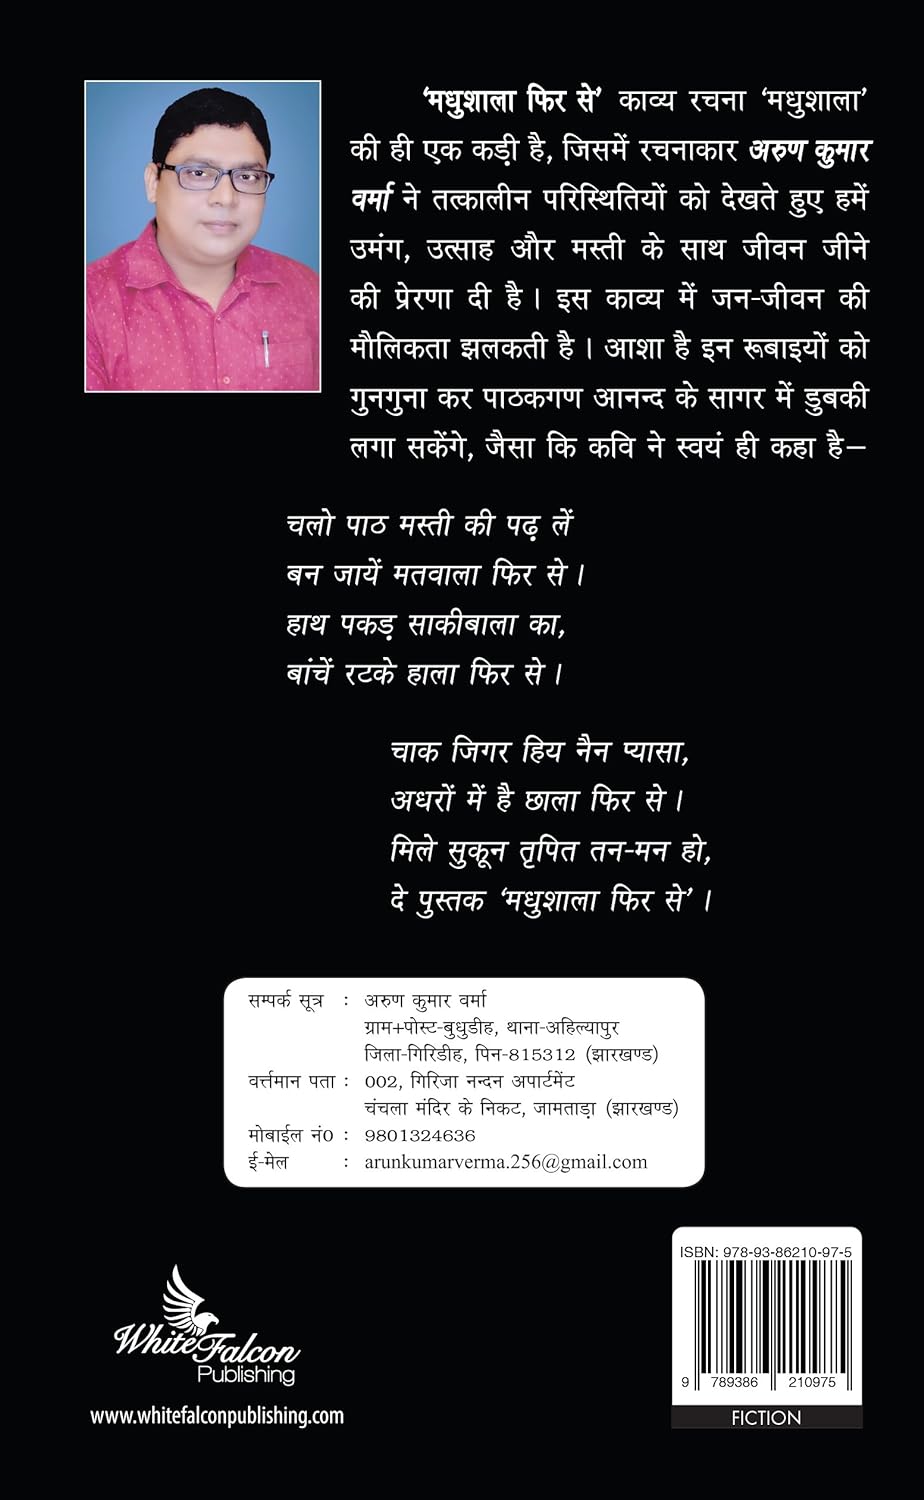 'मधुशाला फिर से' काव्य रचना 'मधुशाला'
की ही एक कड़ी है, जिसमें रचनाकार अरुण कुमार
वर्मा ने तत्कालीन परिस्थितियों को देखते हुए हमें
उमंग, उत्साह और मस्ती के साथ जीवन जीने
की प्रेरणा दी है। इस काव्य में जन-जीवन की
मौलिकता झलकती है। आशा है इन रूबाइयों को
गुनगुना कर पाठकगण आनन्द के सागर में डुबकी
लगा सकेंगे, जैसा कि कवि ने स्वयं ही कहा है–
चलो पाठ मस्ती की पढ़ लें
बन जायें मतवाला फिर से।
हाथ पकड़ साकीबाला का,
बांचें रटके हाला फिर से।
चाक जिगर हिय नैन प्यासा,
अधरों में है छाला फिर से।
मिले सुकून तृपित तन-मन हो,
दे पुस्तक 'मधुशाला फिर से'।
सम्पर्क सूत्र : अरुण कुमार वर्मा
ग्राम+पोस्ट-बुधुडीह, थाना-अहिल्यापुर
जिला-गिरिडीह, पिन-815312 (झारखण्ड)
वर्त्तमान पता : 002, गिरिजा नन्दन अपार्टमेंट
चंचला मंदिर के निकट, जामताड़ा (झारखण्ड)
मोबाईल नं0 : 9801324636
ई-मेल : arunkumarverma.256@gmail.com
White Falcon
Publishing
www.whitefalconpublishing.com
ISBN: 978-93-86210-97-5
9 789386 210975
FICTION